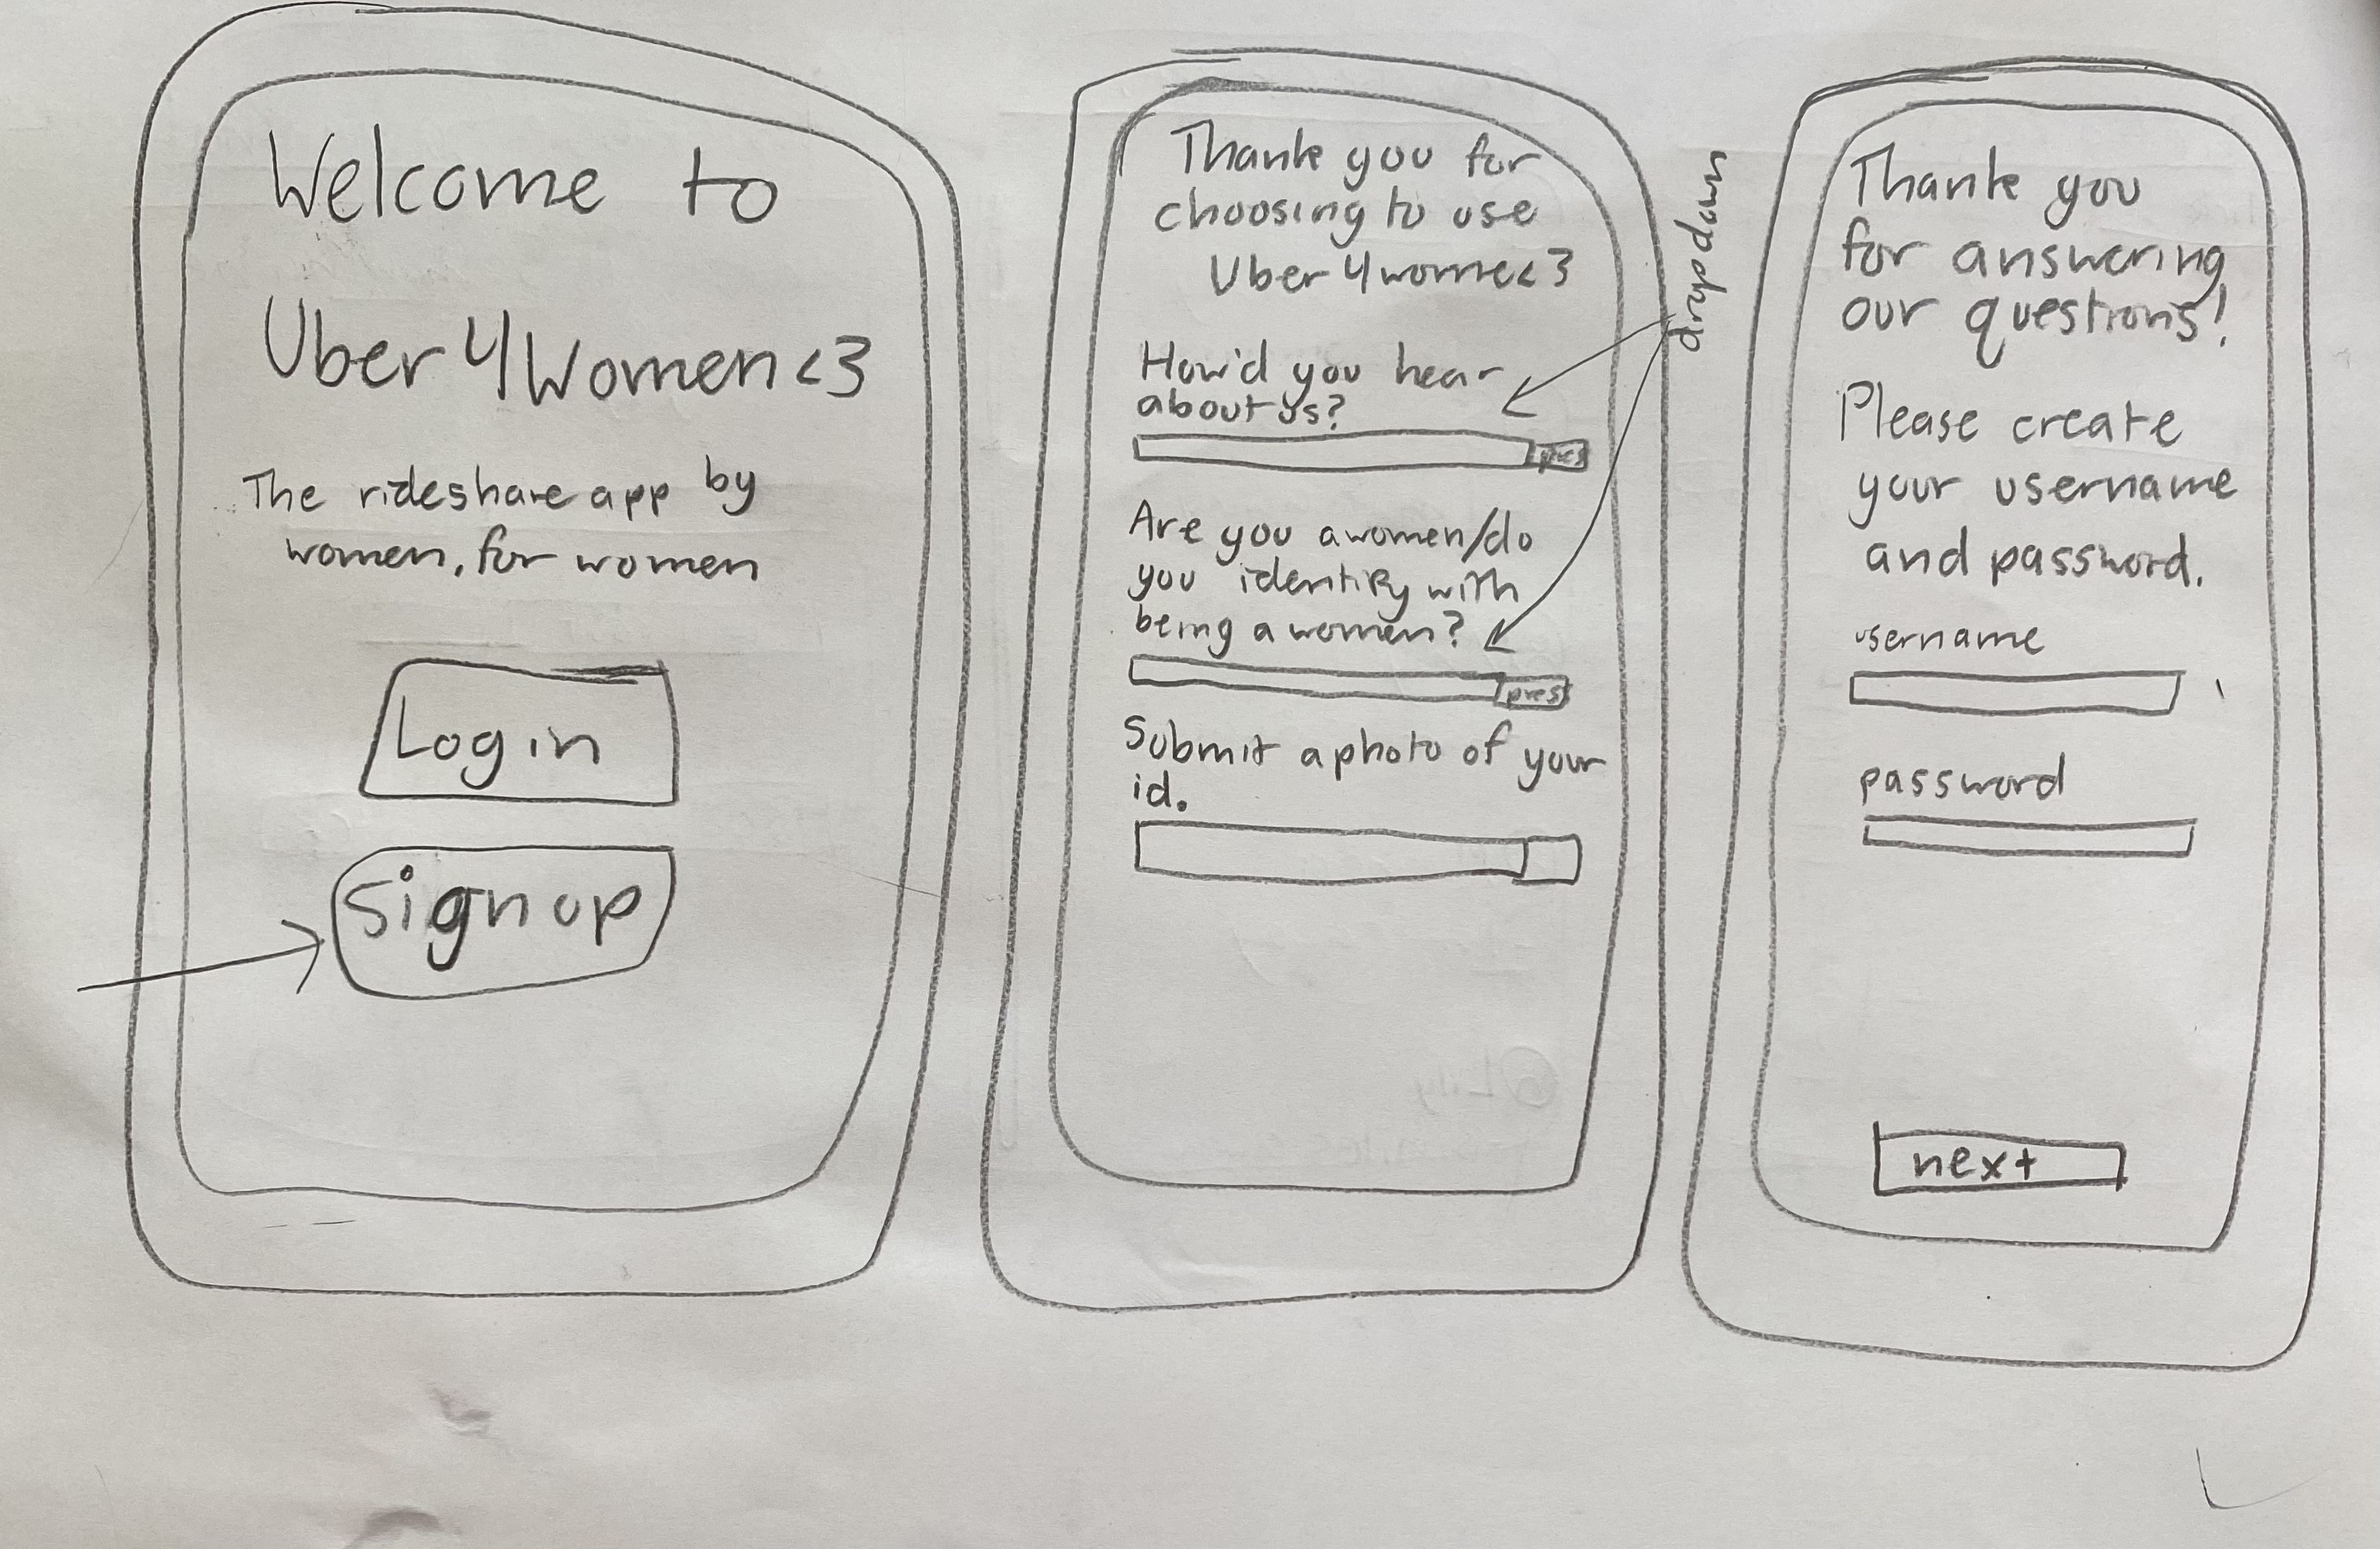 Welcome to
Uber 4Women<3
The rideshare app by
women, for women
Log in
Sign up
Thank you for
choosing to use
Uber 4wome<3
How'd you hear
about us?
pres
Are you a women/do
you identify with
being a women?
pres
Submit a photo of your
id.
dropdown
Thank you
for answering
our questions!
Please create
your username
and password.
username
password
next